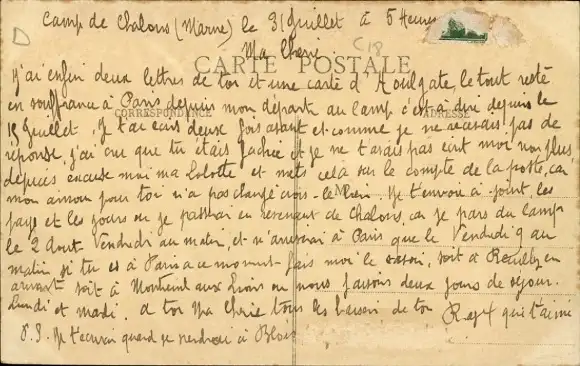 Camp de Chalons (Marne) le 31 Juillet à 5 Heures
Ma Chérie
CARTE POSTALE
J'ai enfin deux lettres de toi et une carte d'Houlgate, le tout resté
en souffrance à Paris depuis mon départ au camp c'est à dire depuis le
CORRESPONDANCE
ADRESSE
15 Juillet. Je t'ai écris deux fois avant et comme je ne recevais pas de
réponse, j'ai cru que tu étais fachée et je ne t'avais pas écrit moi non plus
depuis excuse moi ma Lolotte et mets cela sur le compte de la poste, car
mon amour pour toi n'a pas changé crois-le bien. Je t'envoie ci-joint les
pays et les jours où je passerai en revenant de Chalons, car je pars du camp
le 2 Aout Vendredi au matin, et n'arriverai à Paris que le Vendredi 9 au
matin si tu es à Paris a ce moment-fais moi le savoir, soit à Reuilly en
arrivant soit à Montreuil aux Lions où nous faisons deux jours de séjour.
Lundi et mardi. a toi Ma Chérie tous les baisers de ton
qui t'aime
P.S. Je t'écrirai quand je viendrai à Blois